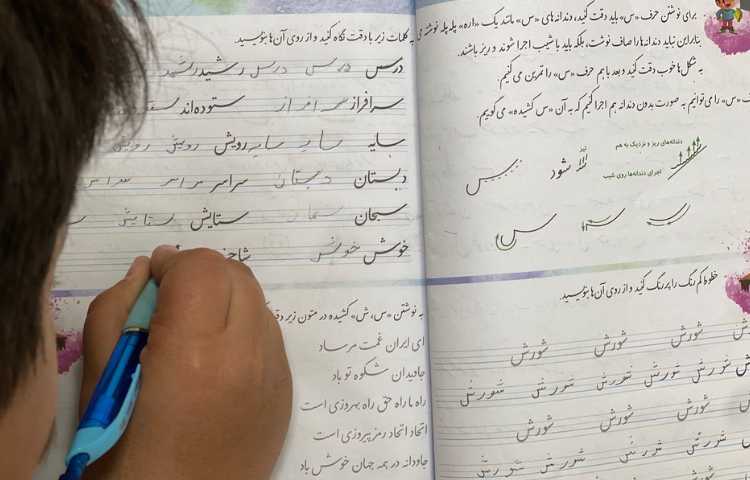 برای نوشتن حرف «س» باید دقت کنید، دندانه‌های «س» مانند یک «اره» پله پله نوشته
بنابراین نباید دندانه‌ها را صاف نوشت، بلکه باید با شیب اجرا شوند و ریز باشند.
به شکل‌ها خوب دقت کنید و بعد با هم حرف «س» را تمرین می‌کنیم.
«س» را می‌توانیم به صورت بدون دندانه هم اجرا کنیم که به آن «س کشیده» می‌گوییم.
دندانه‌های ریز و نزدیک به هم
اجرای دندانه‌ها روی شیب
تیز
شود
س
س
خطوط کم رنگ را پررنگ کنید و از روی آن‌ها بنویسید.
شورش شورش شورش
شورش شورش شورش شورش شورش
شورش شورش شورش
شورش شورش شورش شورش
به کلمات زیر با دقت نگاه کنید و از روی آن‌ها بنویسید.
درس درس درس رشید رشید
سرافراز سرافراز ستوده‌اند
سایه سایه سایه رویش رویش رویش
دبستان دبستان سراسر سراسر سراسر
سبحان سبحان ستایش ستایش
خوش خوش
به نوشتن «س، ش» کشیده در متون زیر
ای ایران غمت مرساد
جاویدان شکوه تو باد
راه ما راه حق راه بهروزی است
اتحاد اتحاد رمز پیروزی است
جاودانه در همه جهان خوش باد